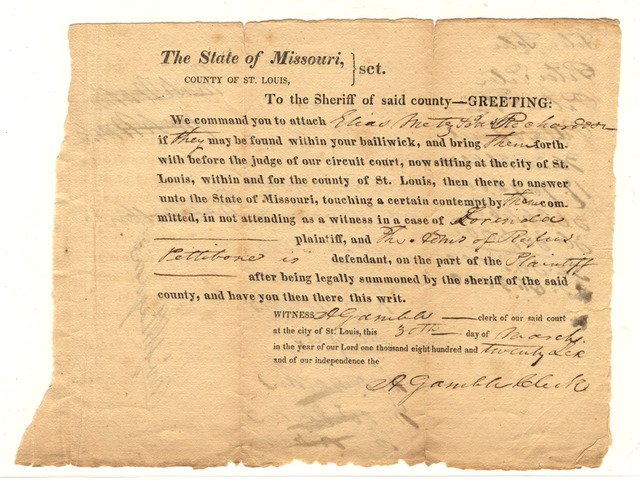 The State of Missouri, } sct.
COUNTY OF ST. LOUIS,
To the Sheriff of said county—GREETING:
We command you to attach Elias Metz Richardson
if they may be found within your bailiwick, and bring them forth-
with before the judge of our circuit court, now sitting at the city of St.
Louis, within and for the county of St. Louis, then there to answer
unto the State of Missouri, touching a certain contempt by them com-
mitted, in not attending as a witness in a case of Lorinda
plaintiff, and The Adms of Rufus
Pettibone is defendant, on the part of the Plaintiff
after being legally summoned by the sheriff of the said
county, and have you then there this writ.
WITNESS, A Gamble — clerk of our said court
at the city of St. Louis, this 30th — day of March
in the year of our Lord one thousand eight hundred and twenty six
and of our independence the
A Gamble Clerk